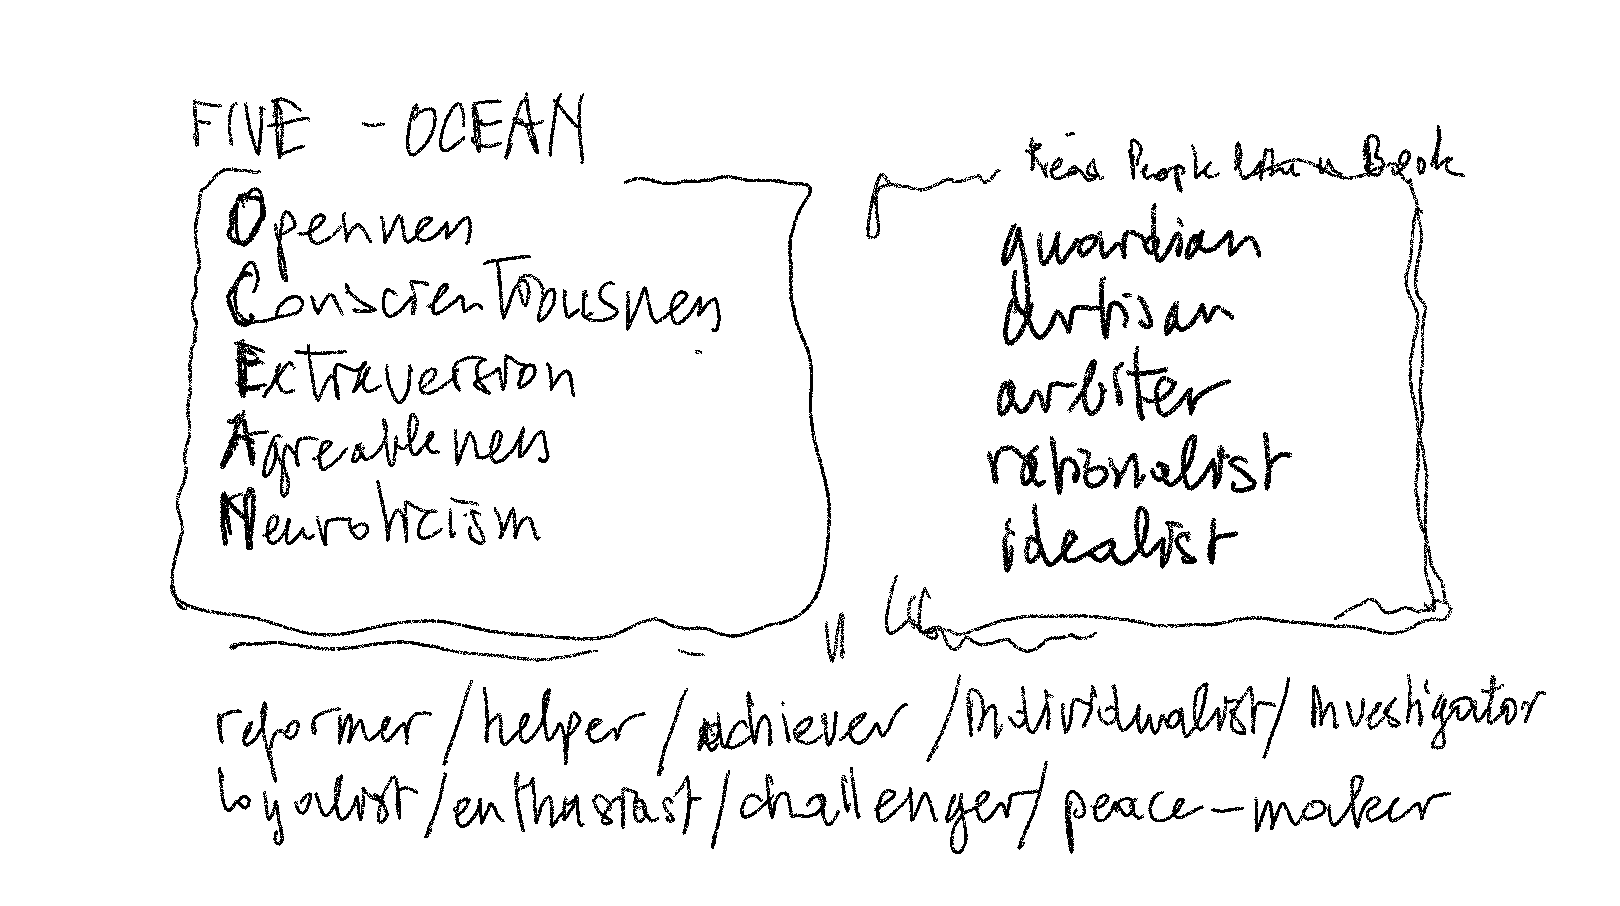 FIVE - OCEAN
Openness
Conscientiousness
Extraversion
Agreableness
Neuroticism
Read People like a Book
guardian
artisan
arbiter
rationalist
idealist
reformer / helper / achiever / Individualist / Investigator
loyalist / enthusiast / challenger / peace-maker